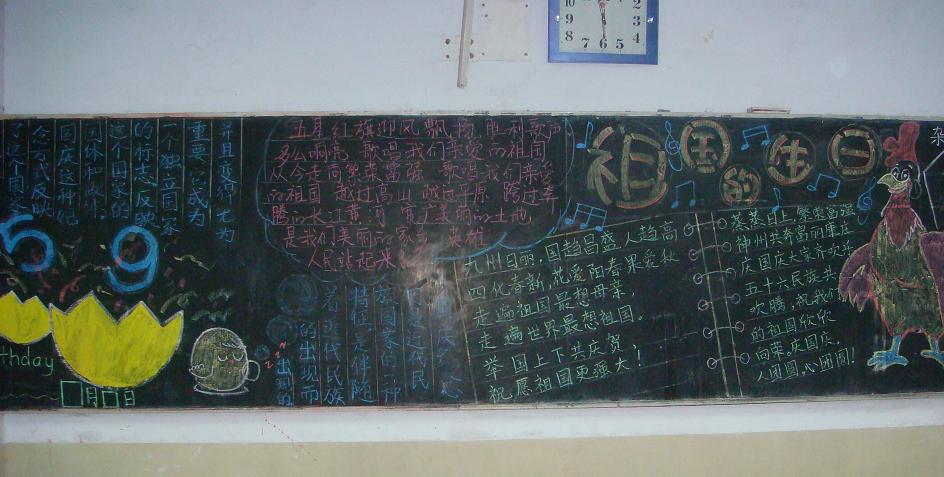 10
9
8
7
6
5
4
3
2
祖国的生日
五星红旗迎风飘扬，胜利歌声
多么响亮，歌唱我们亲爱的祖国
从今走向繁荣富强，歌唱我们亲爱
的祖国，越过高山，越过平原，跨过奔
腾的长江黄河，宽广美丽的土地，
是我们美丽的家乡，英雄
人民站起来
九州日朗，国趋昌盛，人趋高
四化春新，花爱阳春果爱秋
走遍祖国最想母亲，
走遍世界最想祖国。
举国上下共庆贺
祝愿祖国更强大！
蒸蒸日上，繁荣富强
神州共奔富丽康庄
庆国庆大家齐欢乐
五十六民族共
欢腾，祝我们
的祖国欣欣
向荣，庆国庆，
人团圆心团圆！
并且变得尤为
重要，成为
一个独立国家
的标志，反映
这个国家的
国体和政体。
国庆这种纪
59
thday
月 日
出现的
的出现而
着近代民族
情征，是伴随
族国家的一种